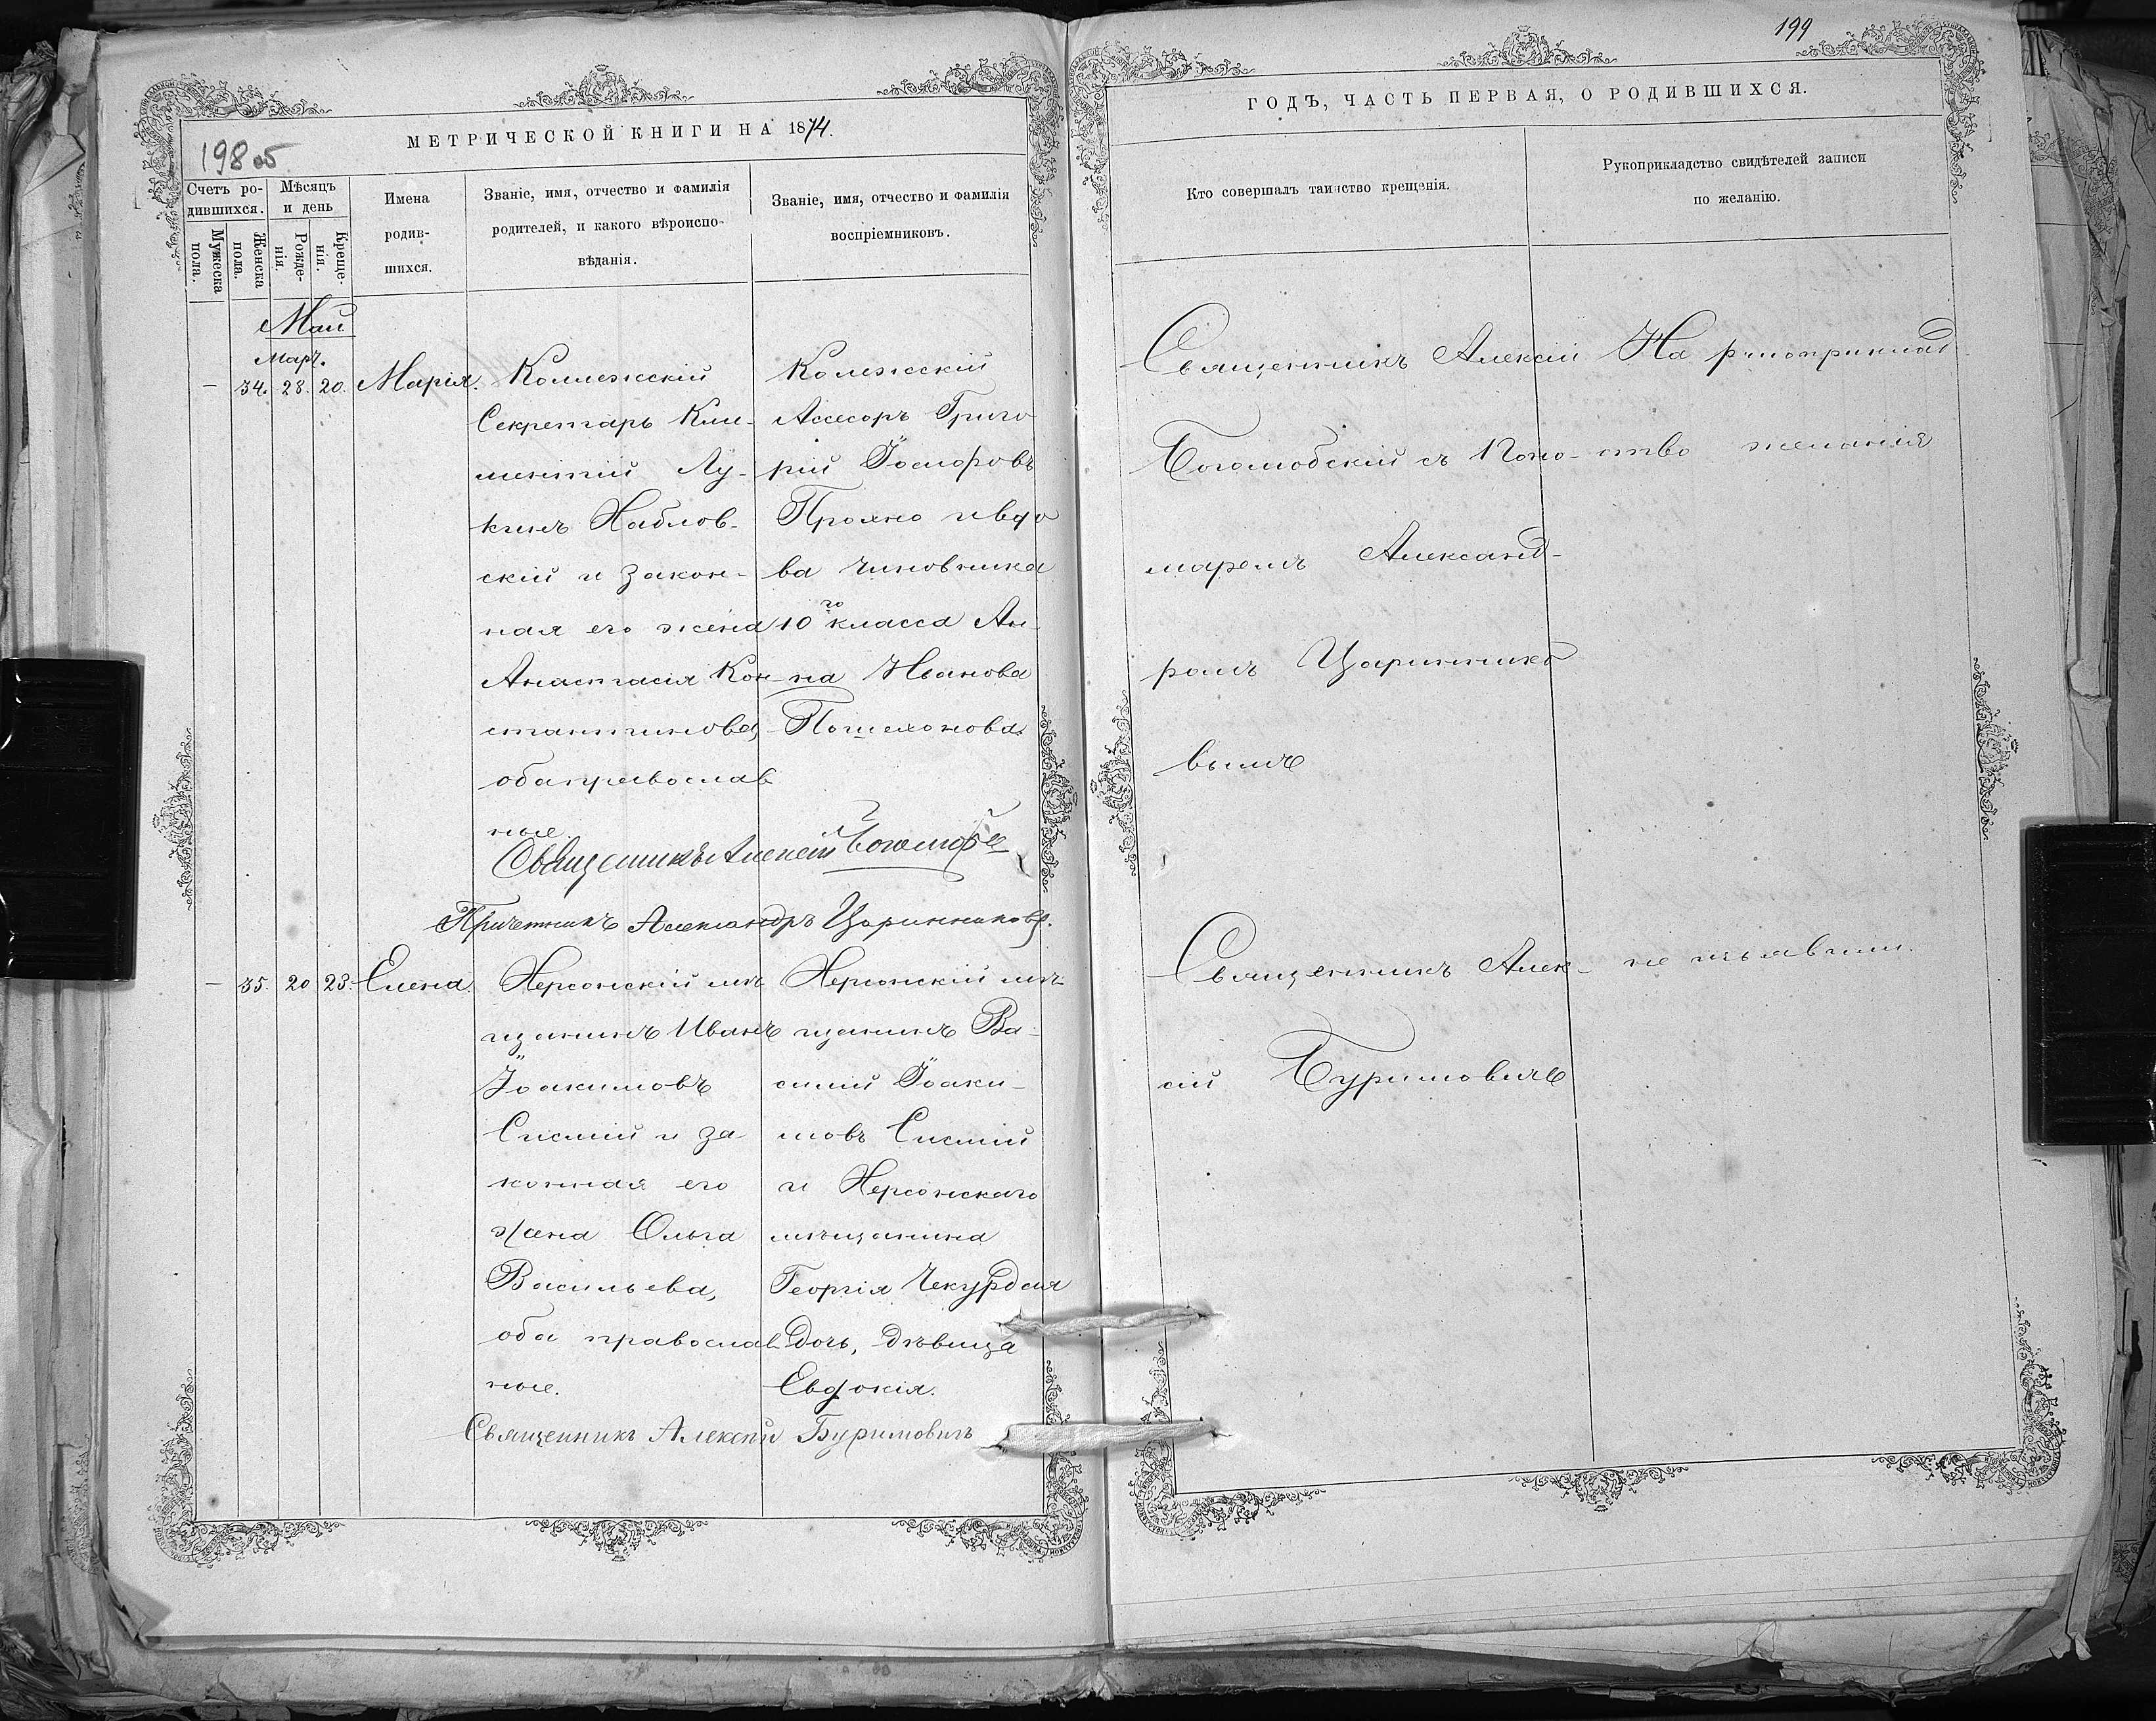 199
МЕТРИЧЕСКОЙ КНИГИ НА 1874.
198 об
Счетъ ро-
дившихся.
Мужеска пола.
Женска пола.
Мѣсяцъ
и день
Рожде-
нія.
Креще-
нія.
Имена
родив-
шихся.
Званіе, имя, отчество и фамилія
родителей, и какого вѣроиспо-
вѣданія.
Званіе, имя, отчество и фамилія
воспріемниковъ.
Май
Март.
— 34. 28. 20. Марія.
Коллежскій
Секретарь Кли-
ментій Лу-
кинъ Наблов-
скій и закон-
ная его жена
Анастасія Кон-
стантинова,
оба православ
ные.
Колежскій
Ассесоръ Григо
рій Іосифовъ
и вдо
ва чиновника
10го класса Ан-
на Иванова
Пошехонова.
Священникъ Алексій
Причетникъ Александръ Царинниковъ.
— 35. 20 23. Елена.
Херсонскій мѣ
щанинъ Иванъ
Іоакимовъ
и за
конная его
жена Ольга
Васильева,
оба православ
ные.
Херсонскій мѣ-
щанинъ Ва-
силій Іоаки-
мовъ
и Херсонскаго
мѣщанина
Георгія
дочь, дѣвица
Евдокія.
Священникъ Алексій Буримовичъ
ГОДЪ, ЧАСТЬ ПЕРВАЯ, О РОДИВШИХСЯ.
Кто совершалъ таинство крещенія.
Рукоприкладство свидѣтелей записи
по желанію.
Священникъ Алексій
Боголюбскій съ Поно-
маремъ Александ-
ромъ Царинико
вымъ
На рукоприклад
ство желанія
Священникъ Алек-
сій Буримовичъ
не изъявили.